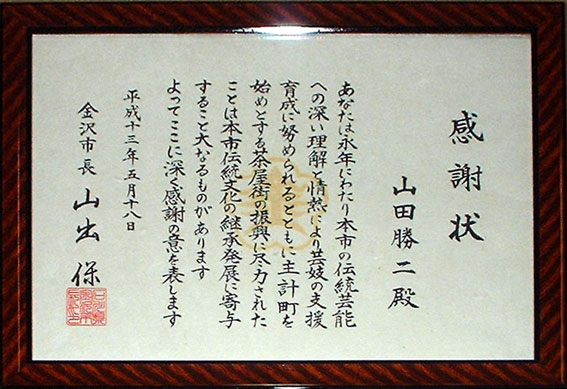 感謝状
山田勝二殿
あなたは永年にわたり本市の伝統芸能
への深い理解と情熱により芸妓の支援
育成に努められるとともに主計町を
始めとする茶屋街の振興に尽力された
ことは本市伝統文化の継承発展に寄与
すること大なるものがあります
よってここに深く感謝の意を表します
平成十三年五月十八日
金沢市長 山出 保